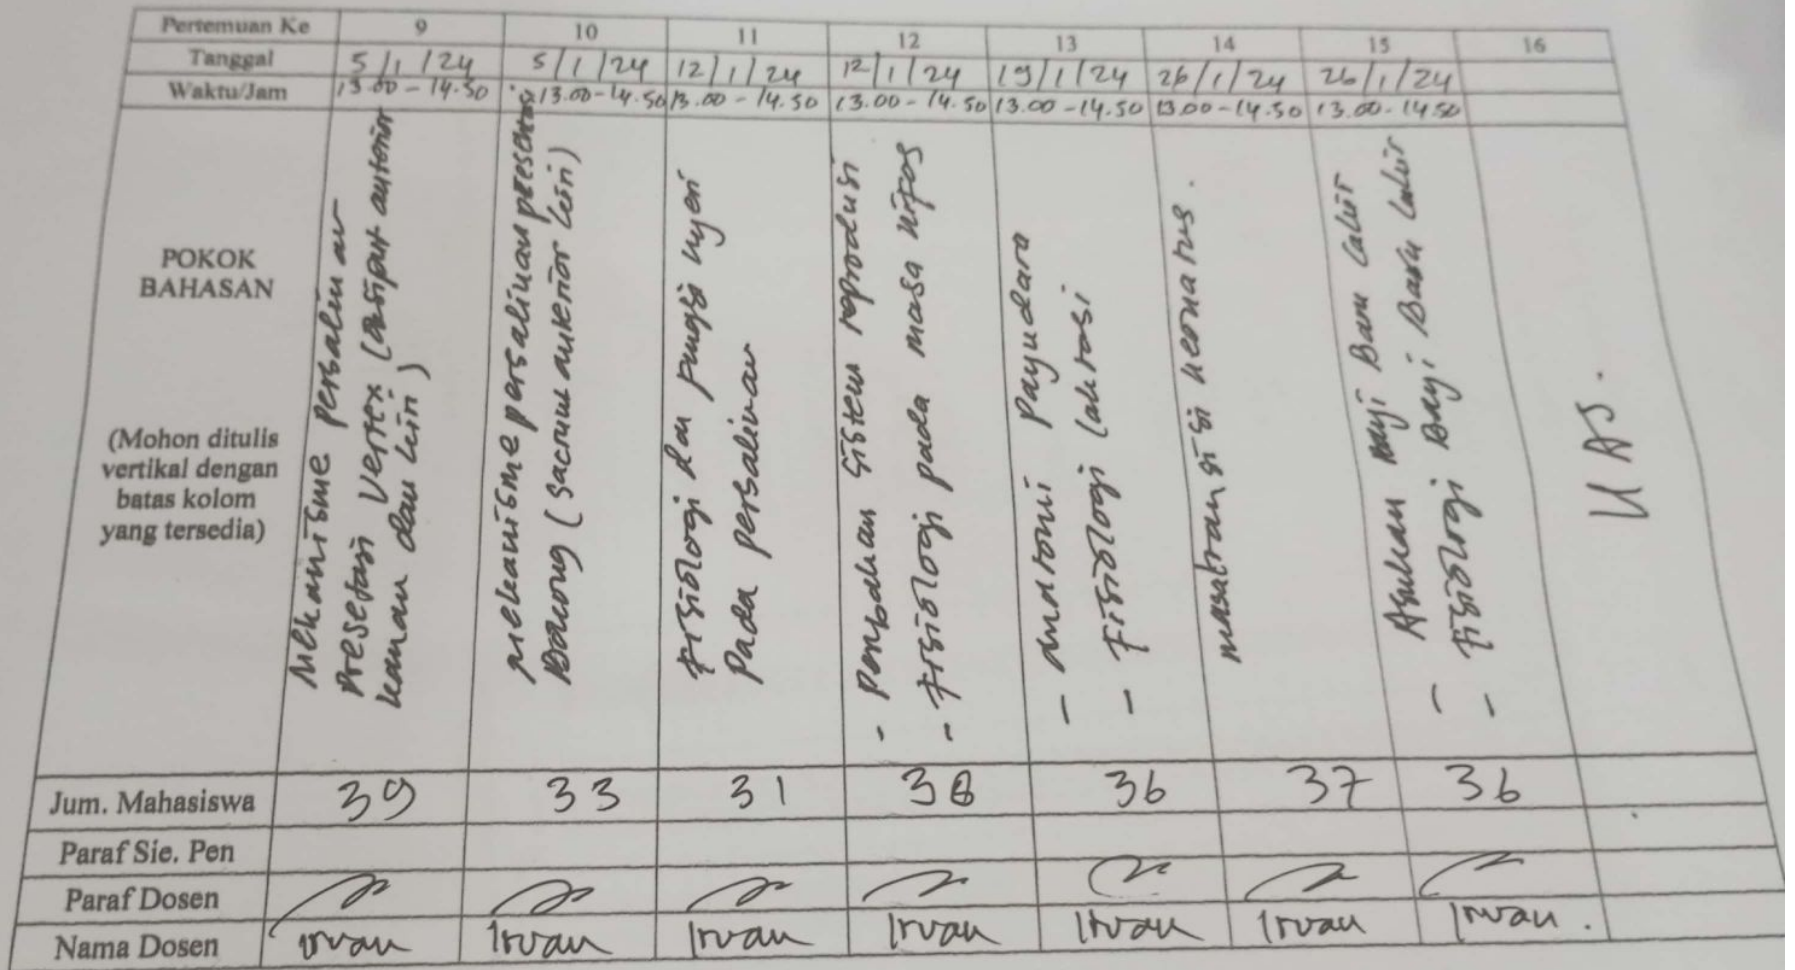 Pertemuan Ke 9 10 11 12 13 14 15 16
Tanggal 5/1/24 5/1/24 12/1/24 12/1/24 19/1/24 26/1/24 26/1/24
Waktu/Jam 13.00-14.50 13.00-14.50 13.00-14.50 13.00-14.50 13.00-14.50 13.00-14.50 13.00-14.50
POKOK
BAHASAN
(Mohon ditulis
vertikal dengan
batas kolom
yang tersedia)
Mekanisme persalinan
Presetasi Vertex (
kanan dan kiri)
mekanisme persalinan presentasi
Bokong (sacrum anterior kiri)
Fisiologi dan nyeri
Pada persalinan
- Perubahan sistem reproduksi
- Fisiologi pada masa nifas
- Anatomi Payudara
- Fisiologi laktasi
masa transisi neonatus.
- Asuhan Bayi Baru Lahir
- Fisiologi Bayi Baru Lahir
UAS.
Jum. Mahasiswa 39 33 31 36 37 36
Paraf Sie. Pen
Paraf Dosen
Nama Dosen Irvan Irvan Irvan Irvan Irvan Irvan Irvan.